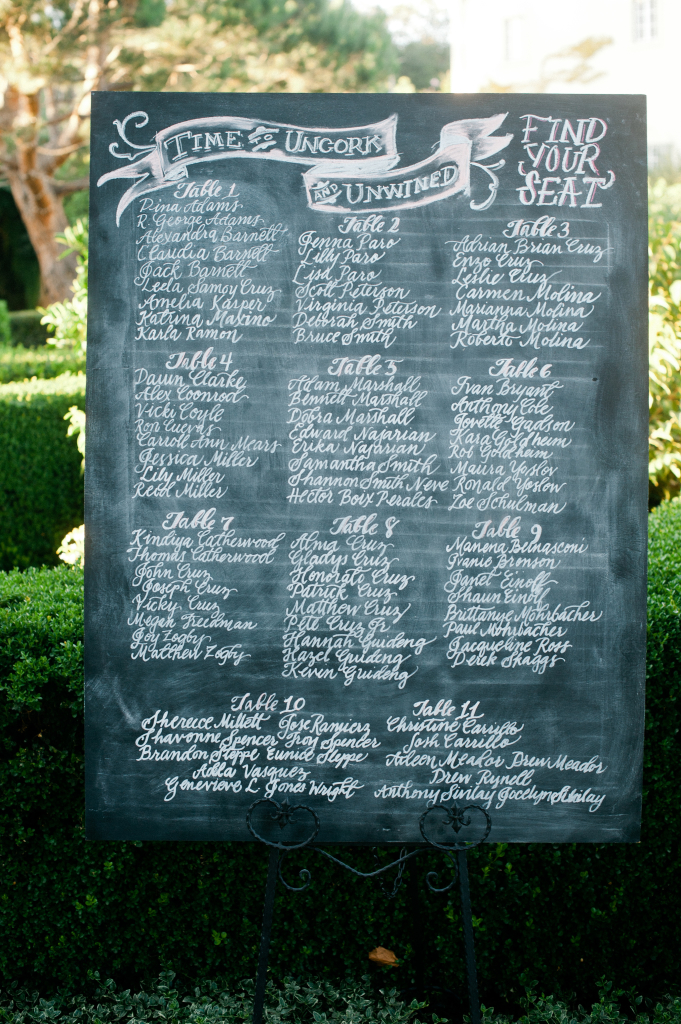 TIME TO UNCORK
AND UNWINED
FIND
YOUR
SEAT
Table 1
Dina Adams
R. George Adams
Alexandra Barnett
Claudia Barnett
Jack Barnett
Leela Samoy Cruz
Amelia Karper
Katrina Maxino
Karla Ramon
Table 2
Jenna Paro
Lilly Paro
Lisa Paro
Scott Peterson
Virginia Peterson
Deborah Smith
Bruce Smith
Table 3
Adrian Brian Cruz
Enzo Cruz
Leslie Cruz
Carmen Molina
Marianna Molina
Martha Molina
Roberto Molina
Table 4
Dawn Clarke
Alex Coonrod
Vicki Coyle
Ron Cuevas
Carroll Ann Mears
Jessica Miller
Lily Miller
Reid Miller
Table 5
Adam Marshall
Bennett Marshall
Debra Marshall
Edward Nafarian
Erika Nafarian
Samantha Smith
Shannon Smith Neve
Hector Boix Perales
Table 6
Ivan Bryant
Anthony Cole
Jovette Gadson
Kara Goldheim
Rob Goldham
Maura Yoslov
Ronald Yoslow
Zoe Schulman
Table 7
Kindiya Catherwood
Thomas Catherwood
John Cruz
Joseph Cruz
Vicky Cruz
Megan Freedman
Joy Zogby
Matthew Zogby
Table 8
Alma Cruz
Gladys Cruz
Honorato Cruz
Patrick Cruz
Matthew Cruz
Pete Cruz Jr
Hannah Guideng
Hazel Guideng
Keven Guideng
Table 9
Manena Belnasconi
Ivanie Bronson
Janet Einoff
Shaun Einoff
Brittanye Mohrbacher
Paul Mohrbacher
Jacqueline Ross
Derek Skaggs
Table 10
Sherece Millett Jose Ramierz
Shavonne Spencer Troy Spencer
Brandon Steppe Eunice Steppe
Adela Vasquez
Genevieve L Jones Wright
Table 11
Christine Carrillo
Josh Carrillo
Aileen Meador Drew Meador
Drew Rynell
Anthony Sinlay Jocelyn Sinlay